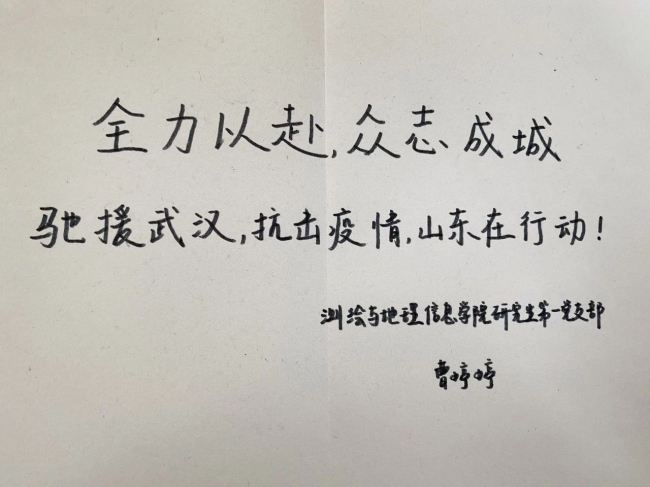 全力以赴,众志成城
驰援武汉,抗击疫情,山东在行动!
测绘与地理信息学院研究生第一党支部
曹婷婷